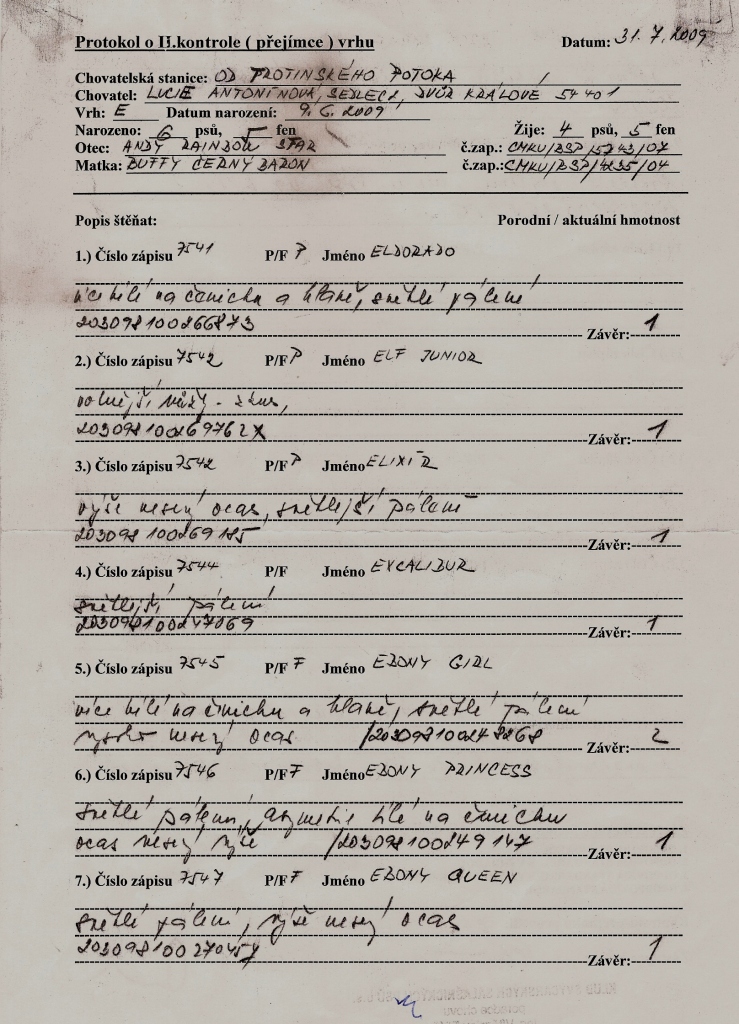 Protokol o II.kontrole ( přejímce ) vrhu Datum: 31. 7. 2009
Chovatelská stanice: OD FLOTINSKÉHO POTOKA
Chovatel: LUCIE ANTONÍNOVÁ, SEDLEC 2, DVŮR KRÁLOVÉ 544 01
Vrh: E Datum narození: 9. 6. 2009
Narozeno: 6 psů, 5 fen Žije: 4 psů, 5 fen
Otec: ANDY RAINBOW STAR č.zap.: CMKU/BSP/5743/07
Matka: BUFFY ČERNÝ BARON č.zap.: CMKU/BSP/4235/04
Popis štěňat: Porodní / aktuální hmotnost
1.) Číslo zápisu 7541 P/F P Jméno ELDORADO
více bílé na čenichu a hlavě, světlé pálení
203098100266873 Závěr: 1
2.) Číslo zápisu 7542 P/F P Jméno ELF JUNIOR
volnější
203098100269762X Závěr: 1
3.) Číslo zápisu 7542 P/F P Jméno ELIXÍR
výše nesený ocas, světlejší pálení
203098100269185 Závěr: 1
4.) Číslo zápisu 7544 P/F Jméno EXCALIBUR
světlejší pálení
203098100247069 Závěr: 1
5.) Číslo zápisu 7545 P/F F Jméno EBONY GIRL
více bílé na čenichu a hlavě, světlé pálení
vysoko nesený ocas /203098100248268 Závěr: 2
6.) Číslo zápisu 7546 P/F F Jméno EBONY PRINCESS
světlé pálení, asymetrie bílé na čenichu
ocas nesený výše /203098100249147 Závěr: 1
7.) Číslo zápisu 7547 P/F F Jméno EBONY QUEEN
světlé pálení, výše nesený ocas
203098100270457 Závěr: 1